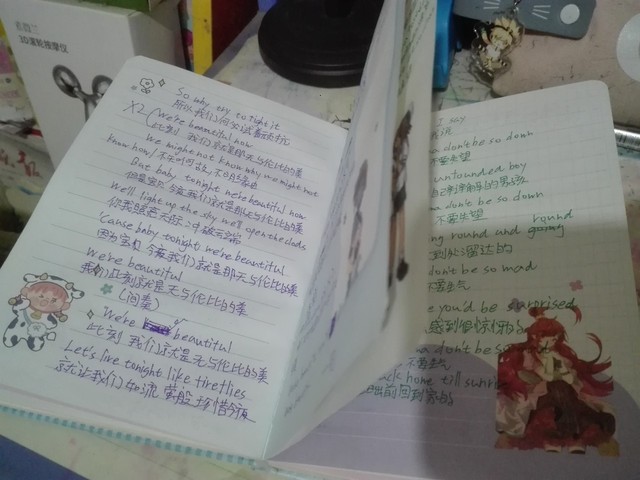 3D滚轮按摩仪
So why try to fight it
所以我们何必试着去抗
X2 (we're beautiful now
此刻 我们就是那无与伦比的美
We might not know why we might not
know how/不知何故,不明缘由
But baby tonight we're beautiful now
但是宝贝 今夜我们就是那无与伦比的美
We'll light up the sky we'll open the clouds
'Cause baby tonight we're beautiful
因为宝贝 今夜我们就是那无与伦比的美
We're beautiful
我们此刻就是无与伦比的美
(间奏)
We're beautiful
此刻 我们就是无与伦比的美
Let's live tonight like fireflies
就让我们如流萤般珍惜今夜
I say
don't be so down
不要失望
unfounded boy
的男孩
don't be so down
不要失望
round
ng round und going
到处溜达的
don't be so mad
不要生气
e you'd be surprised
感到很惊讶的
a don't be so
不要生气
ack home till sunrise
出前回到家的